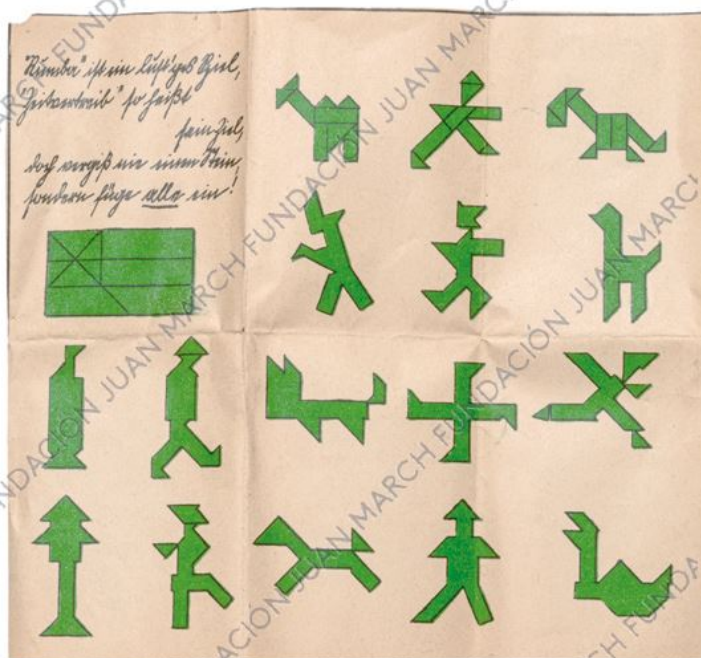 "Rumba" ist ein lust'ges Spiel,
"Zeitvertreib" so heißt
sein Ziel,
doch vergiß nie einen Stein,
sondern füge alle ein!
FUNDACIÓN JUAN MARCH
FUNDACIÓN JUAN MARCH
FUNDACIÓN JUAN MARCH
FUNDACIÓN JUAN MARCH